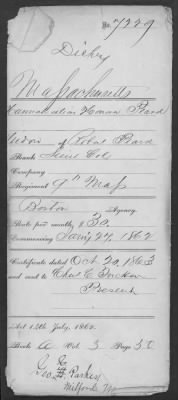 No. 7229
Massachusetts
Hannah alias Honora Beard
Widow of Robert Beard
Rank Lieut Col
Company
Regiment 9" Mass
Boston Agency.
Rate per month, $ 30
Commencing Jan'y 27, 1862
Certificate dated Oct 20, 1863
and sent to Chas C. Tucker
Present
Act 14th July, 1862.
Book A Vol. 3 Page 35
Geo. Parker
Milford